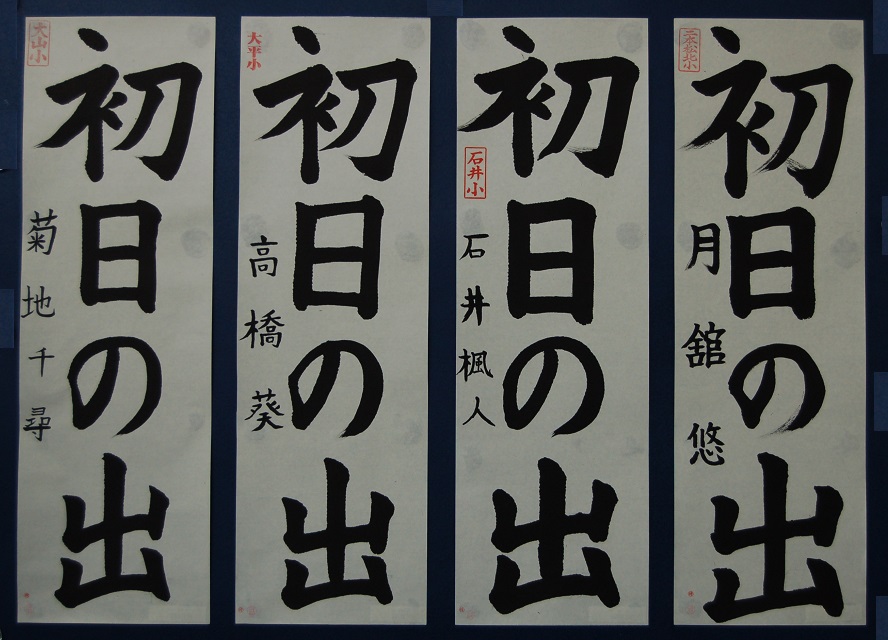 大山小
初日の出
菊地千尋
大平小
初日の出
高橋葵
石井小
初日の出
石井楓人
二本松北小
初日の出
月舘悠